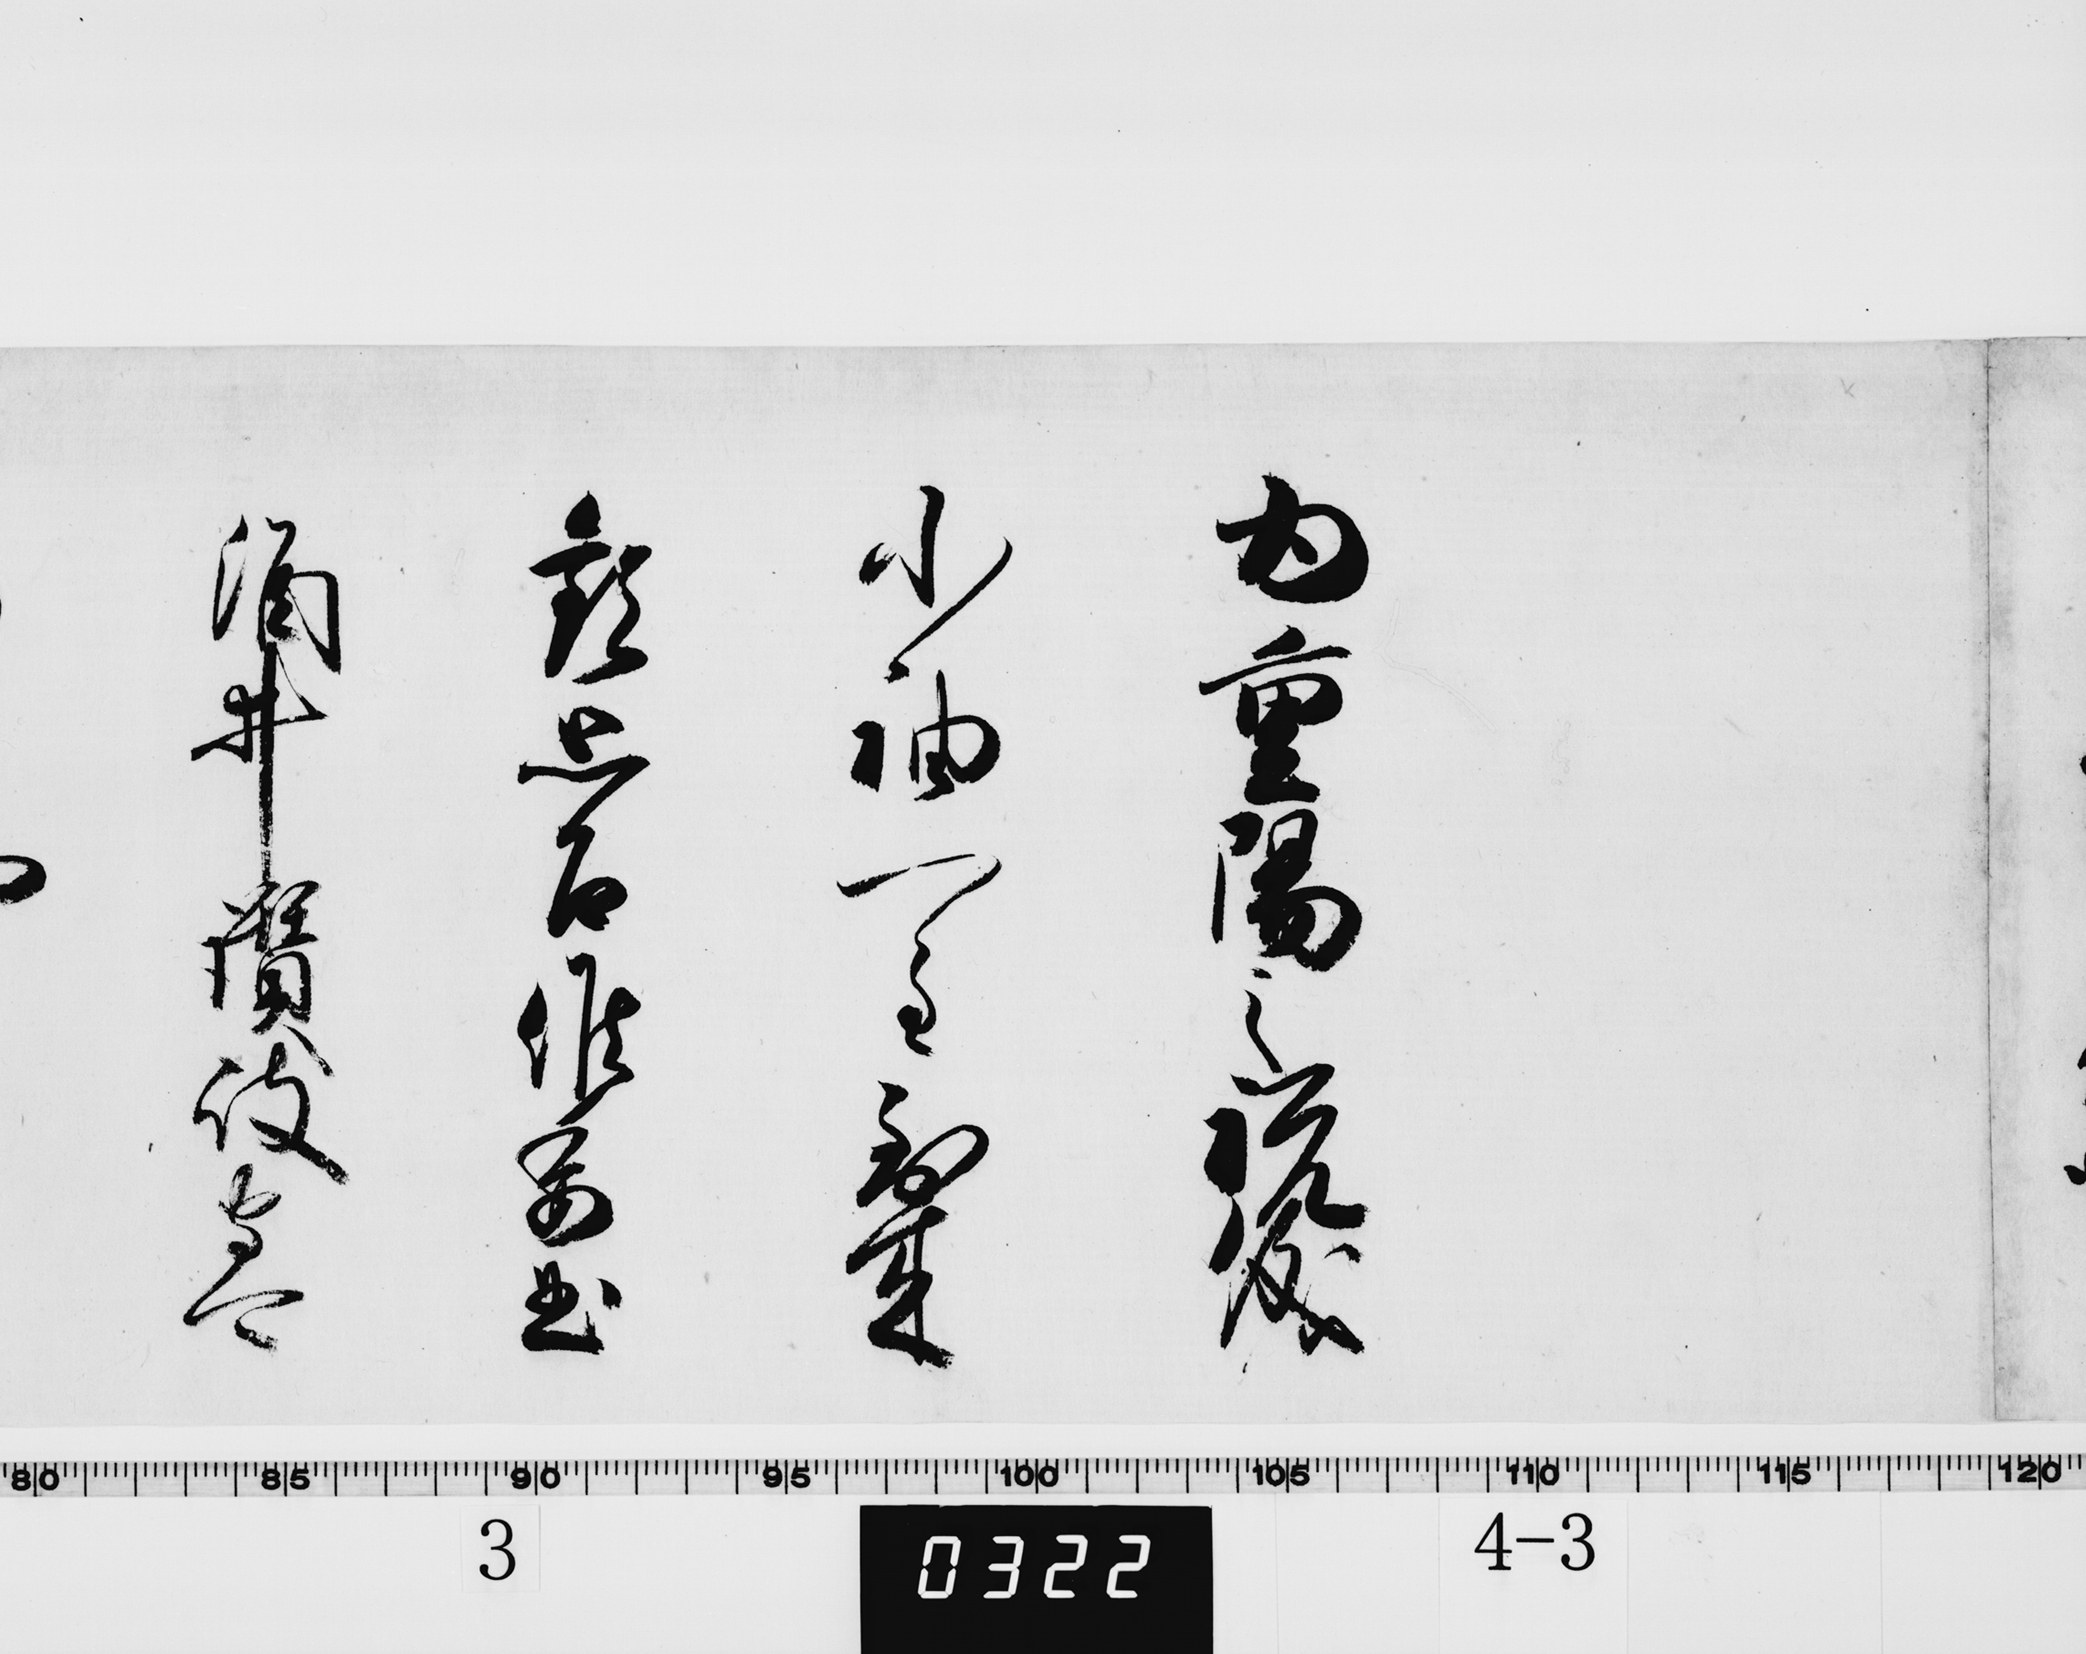 為重陽之祝儀
小袖一重到来
歓思召候委曲
酒井讃岐守可
80 85 90 95 100 105 110 115 120
3 0322 4-3